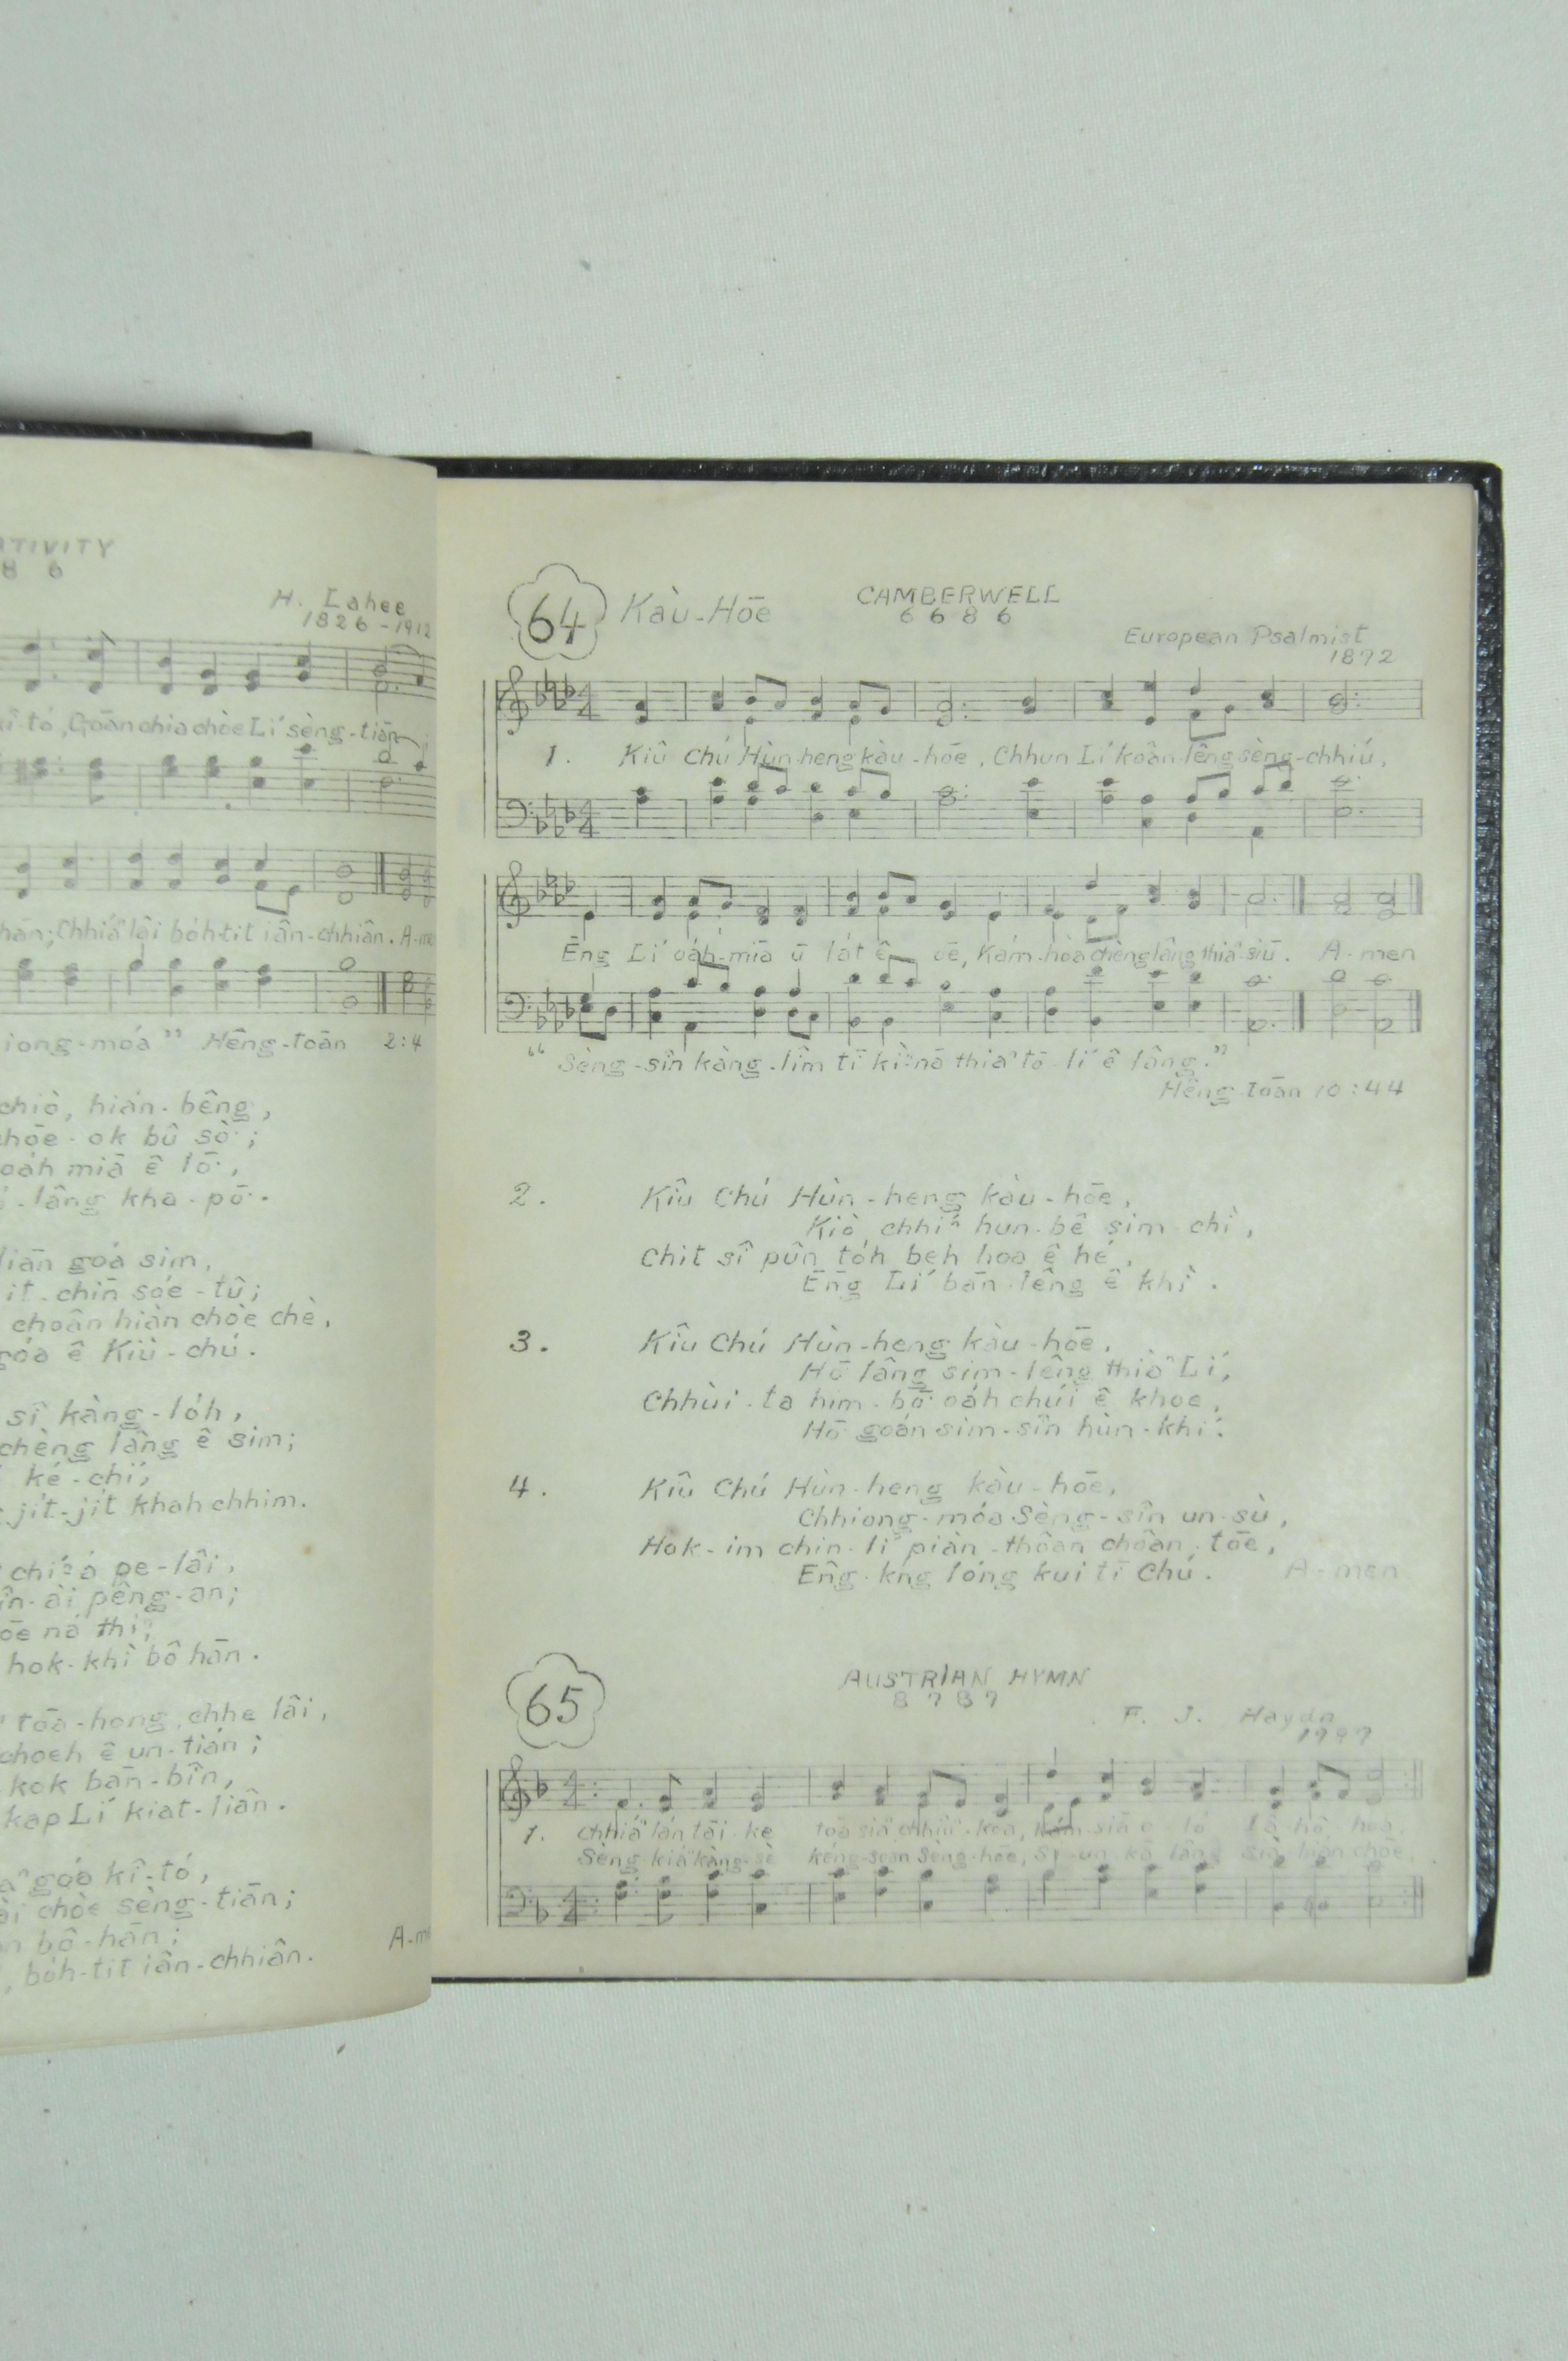 ATIVITY
8 6
H. Lahee
1826-1912
kî-tó, Goān chia chòe Lí sèng-tiān
han; Chhiáⁿ lâi bo̍h-tit iân-chhiân. A-me
iong-móa” Hēng-toān 2:4
chiò, hián-bêng,
hōe-ok bû sò͘;
oa̍h miā ê lō͘,
-lâng kha-pō͘.
liān goá sim,
it-chīn sóe-tû;
choân hiàn chòe chè,
góa ê Kiù-chú.
sî kàng-lo̍h,
chèng lâng ê sim;
ké-chí,
ji̍t-ji̍t khah chhim.
chíⁿ á pe-lâi,
în-ài pêng-an;
ōe ná thíⁿ,
hok-khì bô hān.
tōa-hong chhe lâi,
choeh ê un-tián;
kok bān-bîn,
kap Lí kiat-liân.
góa kî-tó,
ài chòe sèng-tiān;
bô-hān;
A-m
, bo̍h-tit iân-chhiân.
64 Kàu-Hōe CAMBERWELL
6 6 8 6
European Psalmist
1872
1. Kiû Chú Hùn-heng kàu-hōe, Chhun Lí koân-lêng sèng-chhiú,
Ēng Lí oa̍h-miā ū la̍t ê ōe, Kám-hòa chèng lâng thiaⁿ-siū. A-men
“Sèng-sîn kàng-lîm tī kìⁿ-nā thiaⁿ tō-lí ê lâng.”
Hēng-toān 10:44
2. Kiû Chú Hùn-heng kàu-hōe,
Kiò chhíⁿ hun-bê sim-chì,
Chit sî pûn to̍h beh hoa ê hé,
Ēng Lí bān-lêng ê khì.
3. Kiû Chú Hùn-heng kàu-hōe,
Hō͘ lâng sim-lêng thiàⁿ Lí,
Chhùi-ta him-bō͘ oa̍h chúi ê khoe,
Hō͘ goán sim-sîn hùn-khí.
4. Kiû Chú Hùn-heng kàu-hōe,
Chhiong-móa Sèng-sîn un-sù,
Hok-im chin-lí piàn-thoân choân-tōe,
Êng-kng lóng kui tī Chú. A-men
65 AUSTRIAN HYMN
8 7 8 7
F. J. Haydn
1797
1. Chhiáⁿ lán tāi-ke toā siaⁿ chhiùⁿ-koa,
Sèng kiáⁿ kàng-sè